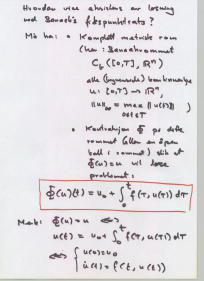 Hvordan vise eksistens av løsning
ved Banachs fikspunktsats?
Må ha: • Komplett metrisk rom
(her: Banachrommet
C_b([0,T], ℝⁿ)
alle (begrensede) kontinuerlige
u: [0,T] → ℝⁿ,
‖u‖_∞ = max ‖u(t)‖ )
0≤t≤T
• Kontraksjon Φ på dette
rommet (eller en åpen
ball i rommet) slik at
Φ(u) = u vil løse
problemet:
Φ(u)(t) = u₀ + ∫₀ᵗ f(τ, u(τ)) dτ
Merk: Φ(u) = u ⟺
u(t) = u₀ + ∫₀ᵗ f(τ, u(τ)) dτ
⟺ { u(0) = u₀
u̇(t) = f(t, u(t))